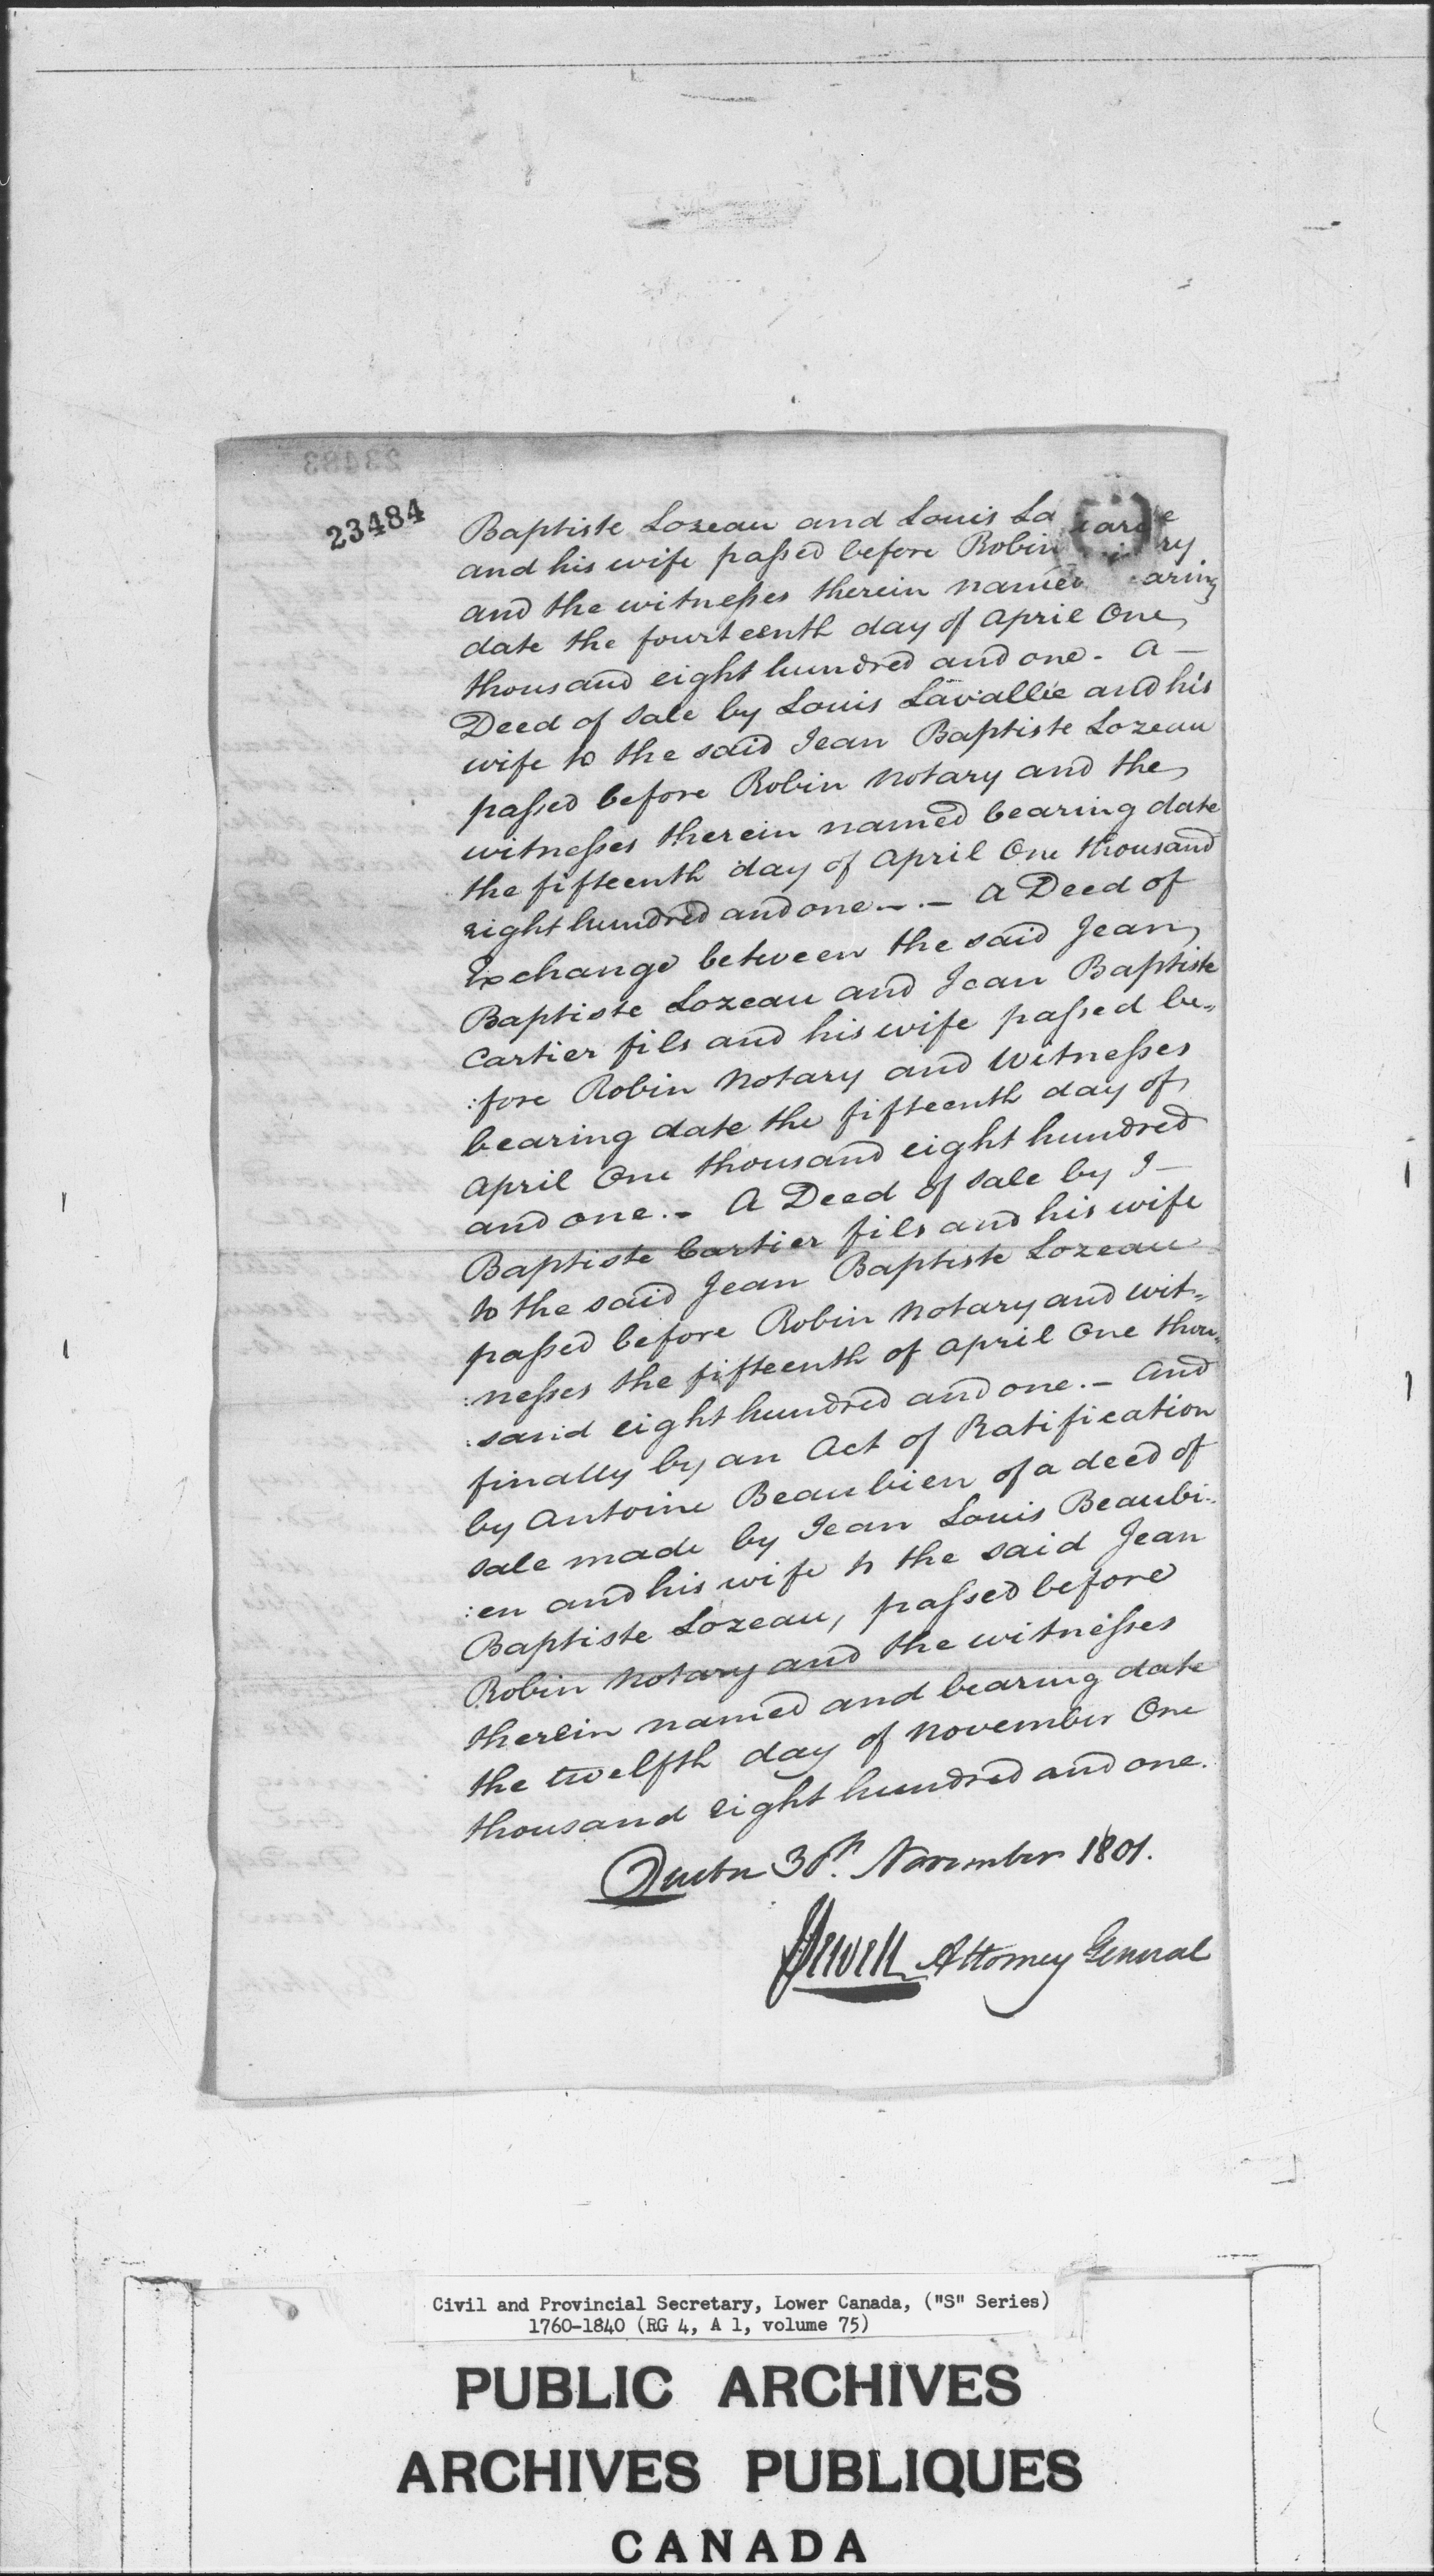 23484
Baptiste Lozeau and Louis La
and his wife passed before Robin ry
and the witnesses therein named aring
date the fourteenth day of April One
thousand eight hundred and one - A —
Deed of Sale by Louis Lavallée and his
wife to the said Jean Baptiste Lozeau
passed before Robin Notary and the
witnesses therein named bearing date
the fifteenth day of April One thousand
eight hundred and one -.- A Deed of
Exchange between the said Jean
Baptiste Lozeau and Jean Baptiste
Cartier fils and his wife passed be=
:fore Robin Notary and Witnesses
bearing date the fifteenth day of
April One thousand eight hundred
and one.- A Deed of Sale by J —
Baptiste Cartier fils and his wife
to the said Jean Baptiste Lozeau
passed before Robin Notary and wit=
:nesses the fifteenth of April One thou=
:sand eight hundred and one.- And
finally by an Act of Ratification
by Antoine Beaubien of a deed of
Sale made by Jean Louis Beaubi=
:en and his wife to the said Jean
Baptiste Lozeau, passed before
Robin Notary and the witnesses
therein named and bearing date
the twelfth day of November One
thousand eight hundred and one.
Quebec 30th. November 1801.
JSewell Attorney General
Civil and Provincial Secretary, Lower Canada, ("S" Series)
1760-1840 (RG 4, A 1, volume 75)
PUBLIC ARCHIVES
ARCHIVES PUBLIQUES
CANADA